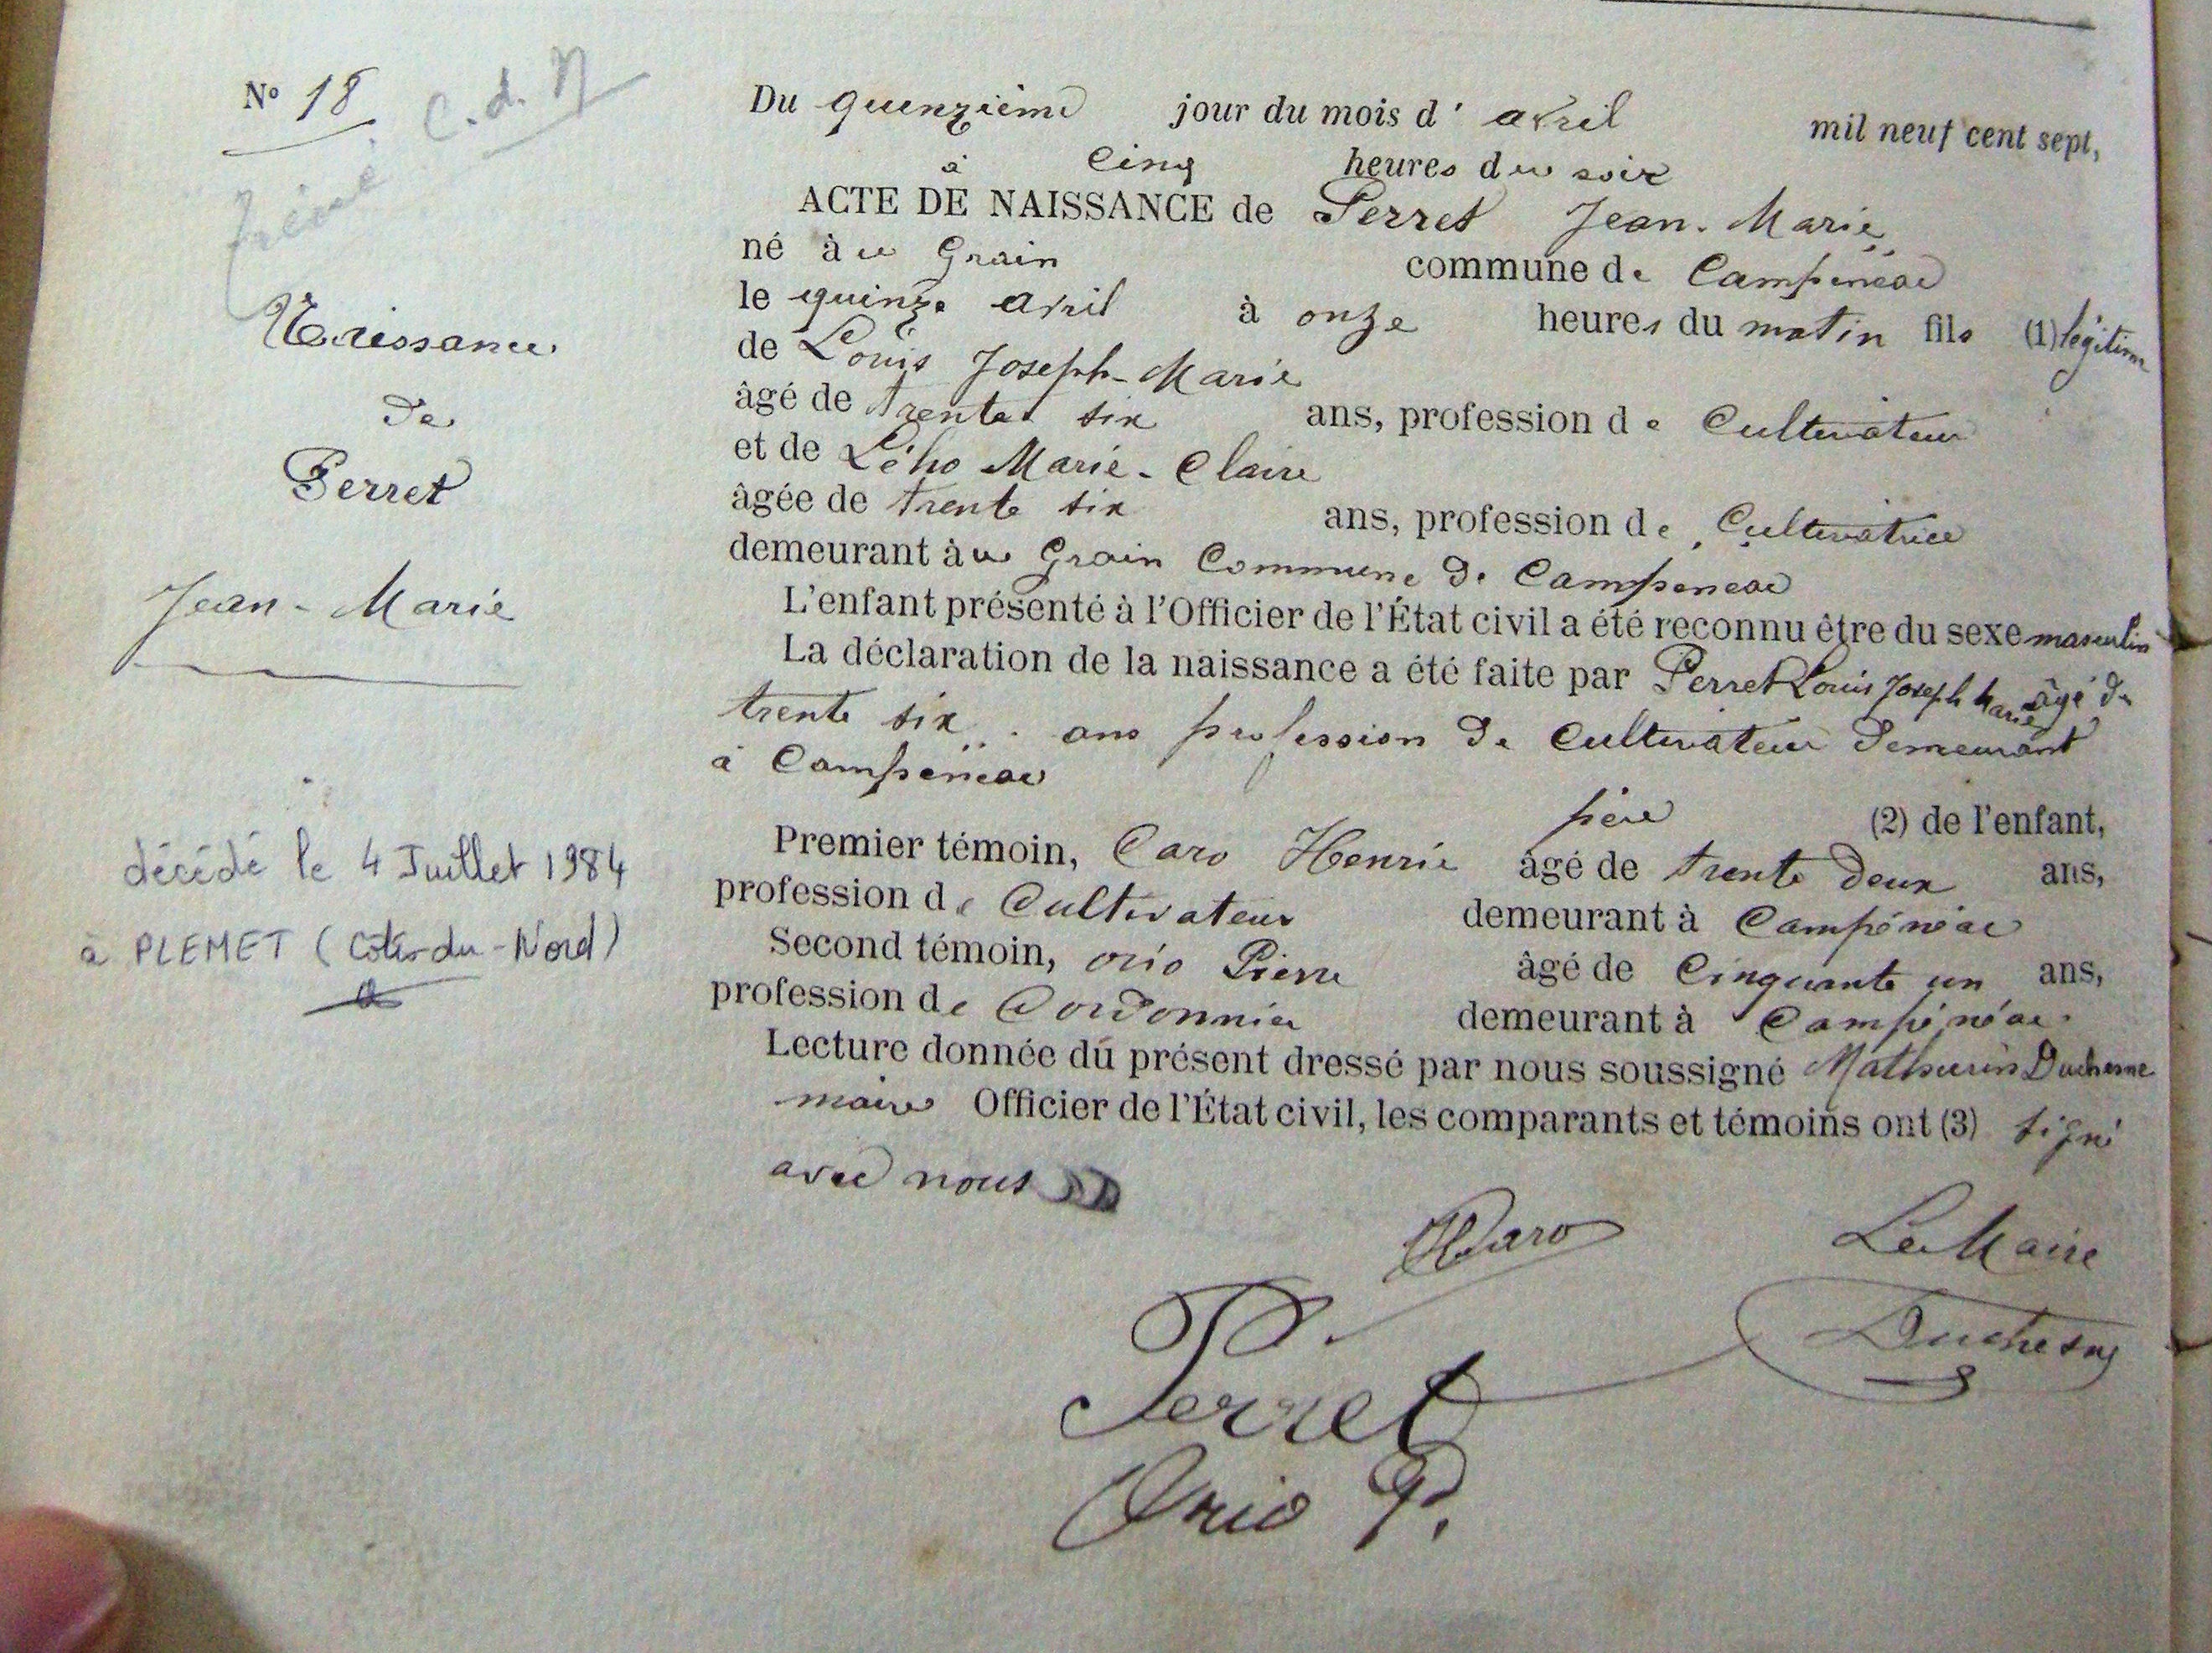 N° 18
C. d. N
Trévé
Naissance
de
Perret
Jean-Marie
décédé le 4 Juillet 1984
à PLEMET (Côtes-du-Nord)
Du quinzième jour du mois d' avril mil neuf cent sept,
à Cinq heures du soir
ACTE DE NAISSANCE de Perret Jean-Marie
né à u Grain commune de Campénéac
le quinze avril à onze heures du matin fils (1) légitime
de Louis Joseph-Marie
âgé de trente six ans, profession de Cultivateur
et de Lého Marie-Claire
âgée de trente six ans, profession de Cultivatrice
demeurant à u Grain Commune de Campeneac
L'enfant présenté à l'Officier de l'État civil a été reconnu être du sexe masculin
La déclaration de la naissance a été faite par Perret Louis Joseph Marie âgé de
trente six ans profession de Cultivateur demeurant
à Campénéac
père (2) de l'enfant,
Premier témoin, Caro Henrie âgé de trente deux ans,
profession de Cultivateur demeurant à Campénéac
Second témoin, orio Pierre âgé de Cinquante un ans,
profession de Cordonnier demeurant à Campénéac
Lecture donnée du présent dressé par nous soussigné Mathurin Duchesne
maire Officier de l'État civil, les comparants et témoins ont (3) signé
avec nous
HCaro
Le Maire
Duchesne
Perret
Orio P.